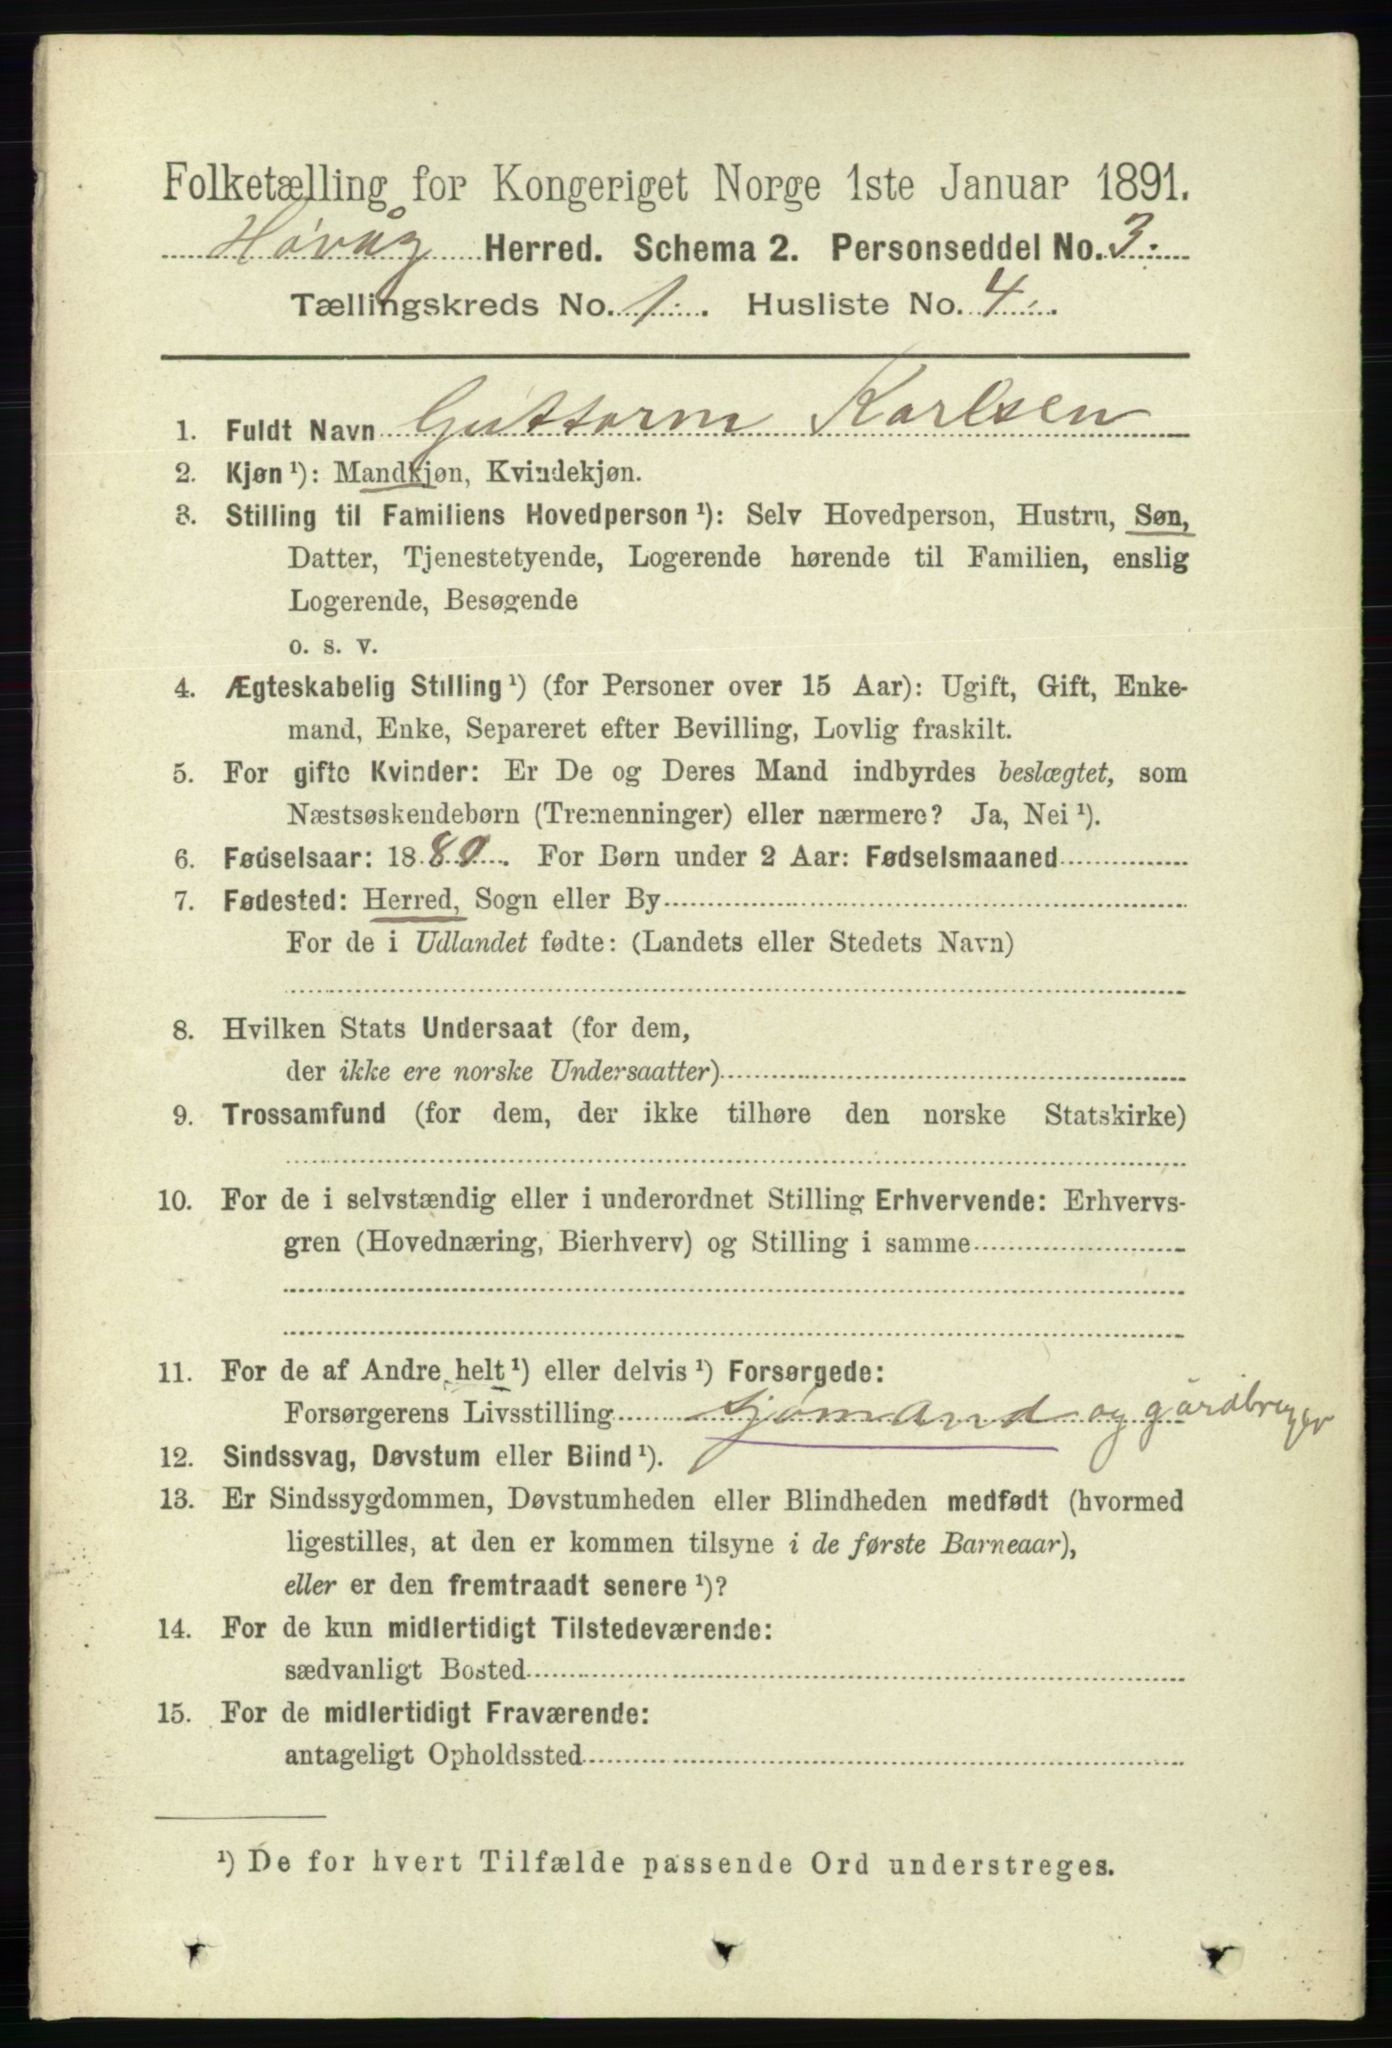 Folketælling for Kongeriget Norge 1ste Januar 1891.
Høvåg Herred. Schema 2. Personseddel No. 3.
Tællingskreds No. 1. Husliste No. 4.
1. Fuldt Navn Guttorm Karlsen
2. Kjøn ¹): Mandkjøn, Kvindekjøn.
3. Stilling til Familiens Hovedperson ¹): Selv Hovedperson, Hustru, Søn,
Datter, Tjenestetyende, Logerende hørende til Familien, enslig
Logerende, Besøgende
o. s. v.
4. Ægteskabelig Stilling ¹) (for Personer over 15 Aar): Ugift, Gift, Enke-
mand, Enke, Separeret efter Bevilling, Lovlig fraskilt.
5. For gifte Kvinder: Er De og Deres Mand indbyrdes beslægtet, som
Næstsøskendebørn (Tremenninger) eller nærmere? Ja, Nei ¹).
6. Fødselsaar: 1880. For Børn under 2 Aar: Fødselsmaaned
7. Fødested: Herred, Sogn eller By
For de i Udlandet fødte: (Landets eller Stedets Navn)
8. Hvilken Stats Undersaat (for dem,
der ikke ere norske Undersaatter)
9. Trossamfund (for dem, der ikke tilhøre den norske Statskirke)
10. For de i selvstændig eller i underordnet Stilling Erhvervende: Erhvervs-
gren (Hovednæring, Bierhverv) og Stilling i samme
11. For de af Andre helt ¹) eller delvis ¹) Forsørgede:
Forsørgerens Livsstilling sjømand og gårdbruger
12. Sindssvag, Døvstum eller Blind ¹).
13. Er Sindssygdommen, Døvstumheden eller Blindheden medfødt (hvormed
ligestilles, at den er kommen tilsyne i de første Barneaar),
eller er den fremtraadt senere ¹)?
14. For de kun midlertidigt Tilstedeværende:
sædvanligt Bosted
15. For de midlertidigt Fraværende:
antageligt Opholdssted
¹) De for hvert Tilfælde passende Ord understreges.